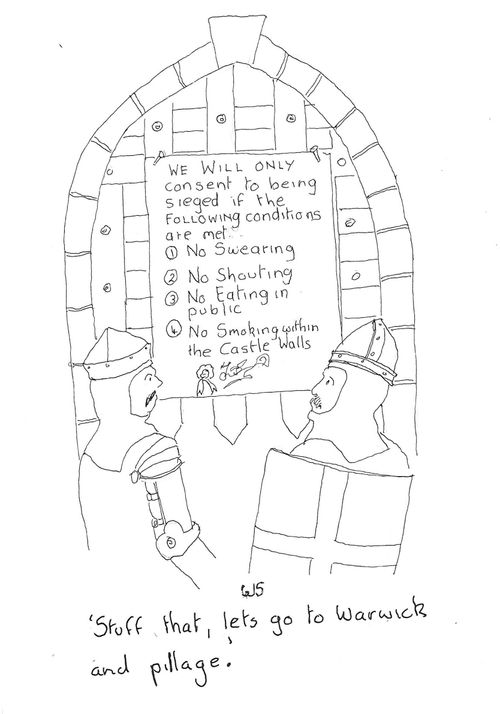 WE WILL ONLY
consent to being
sieged if the
FOLLOWING conditions
are met...
① No Swearing
② No Shouting
③ No Eating in
public
④ No Smoking within
the Castle Walls
WS
'Stuff that, lets go to Warwick
and pillage.'